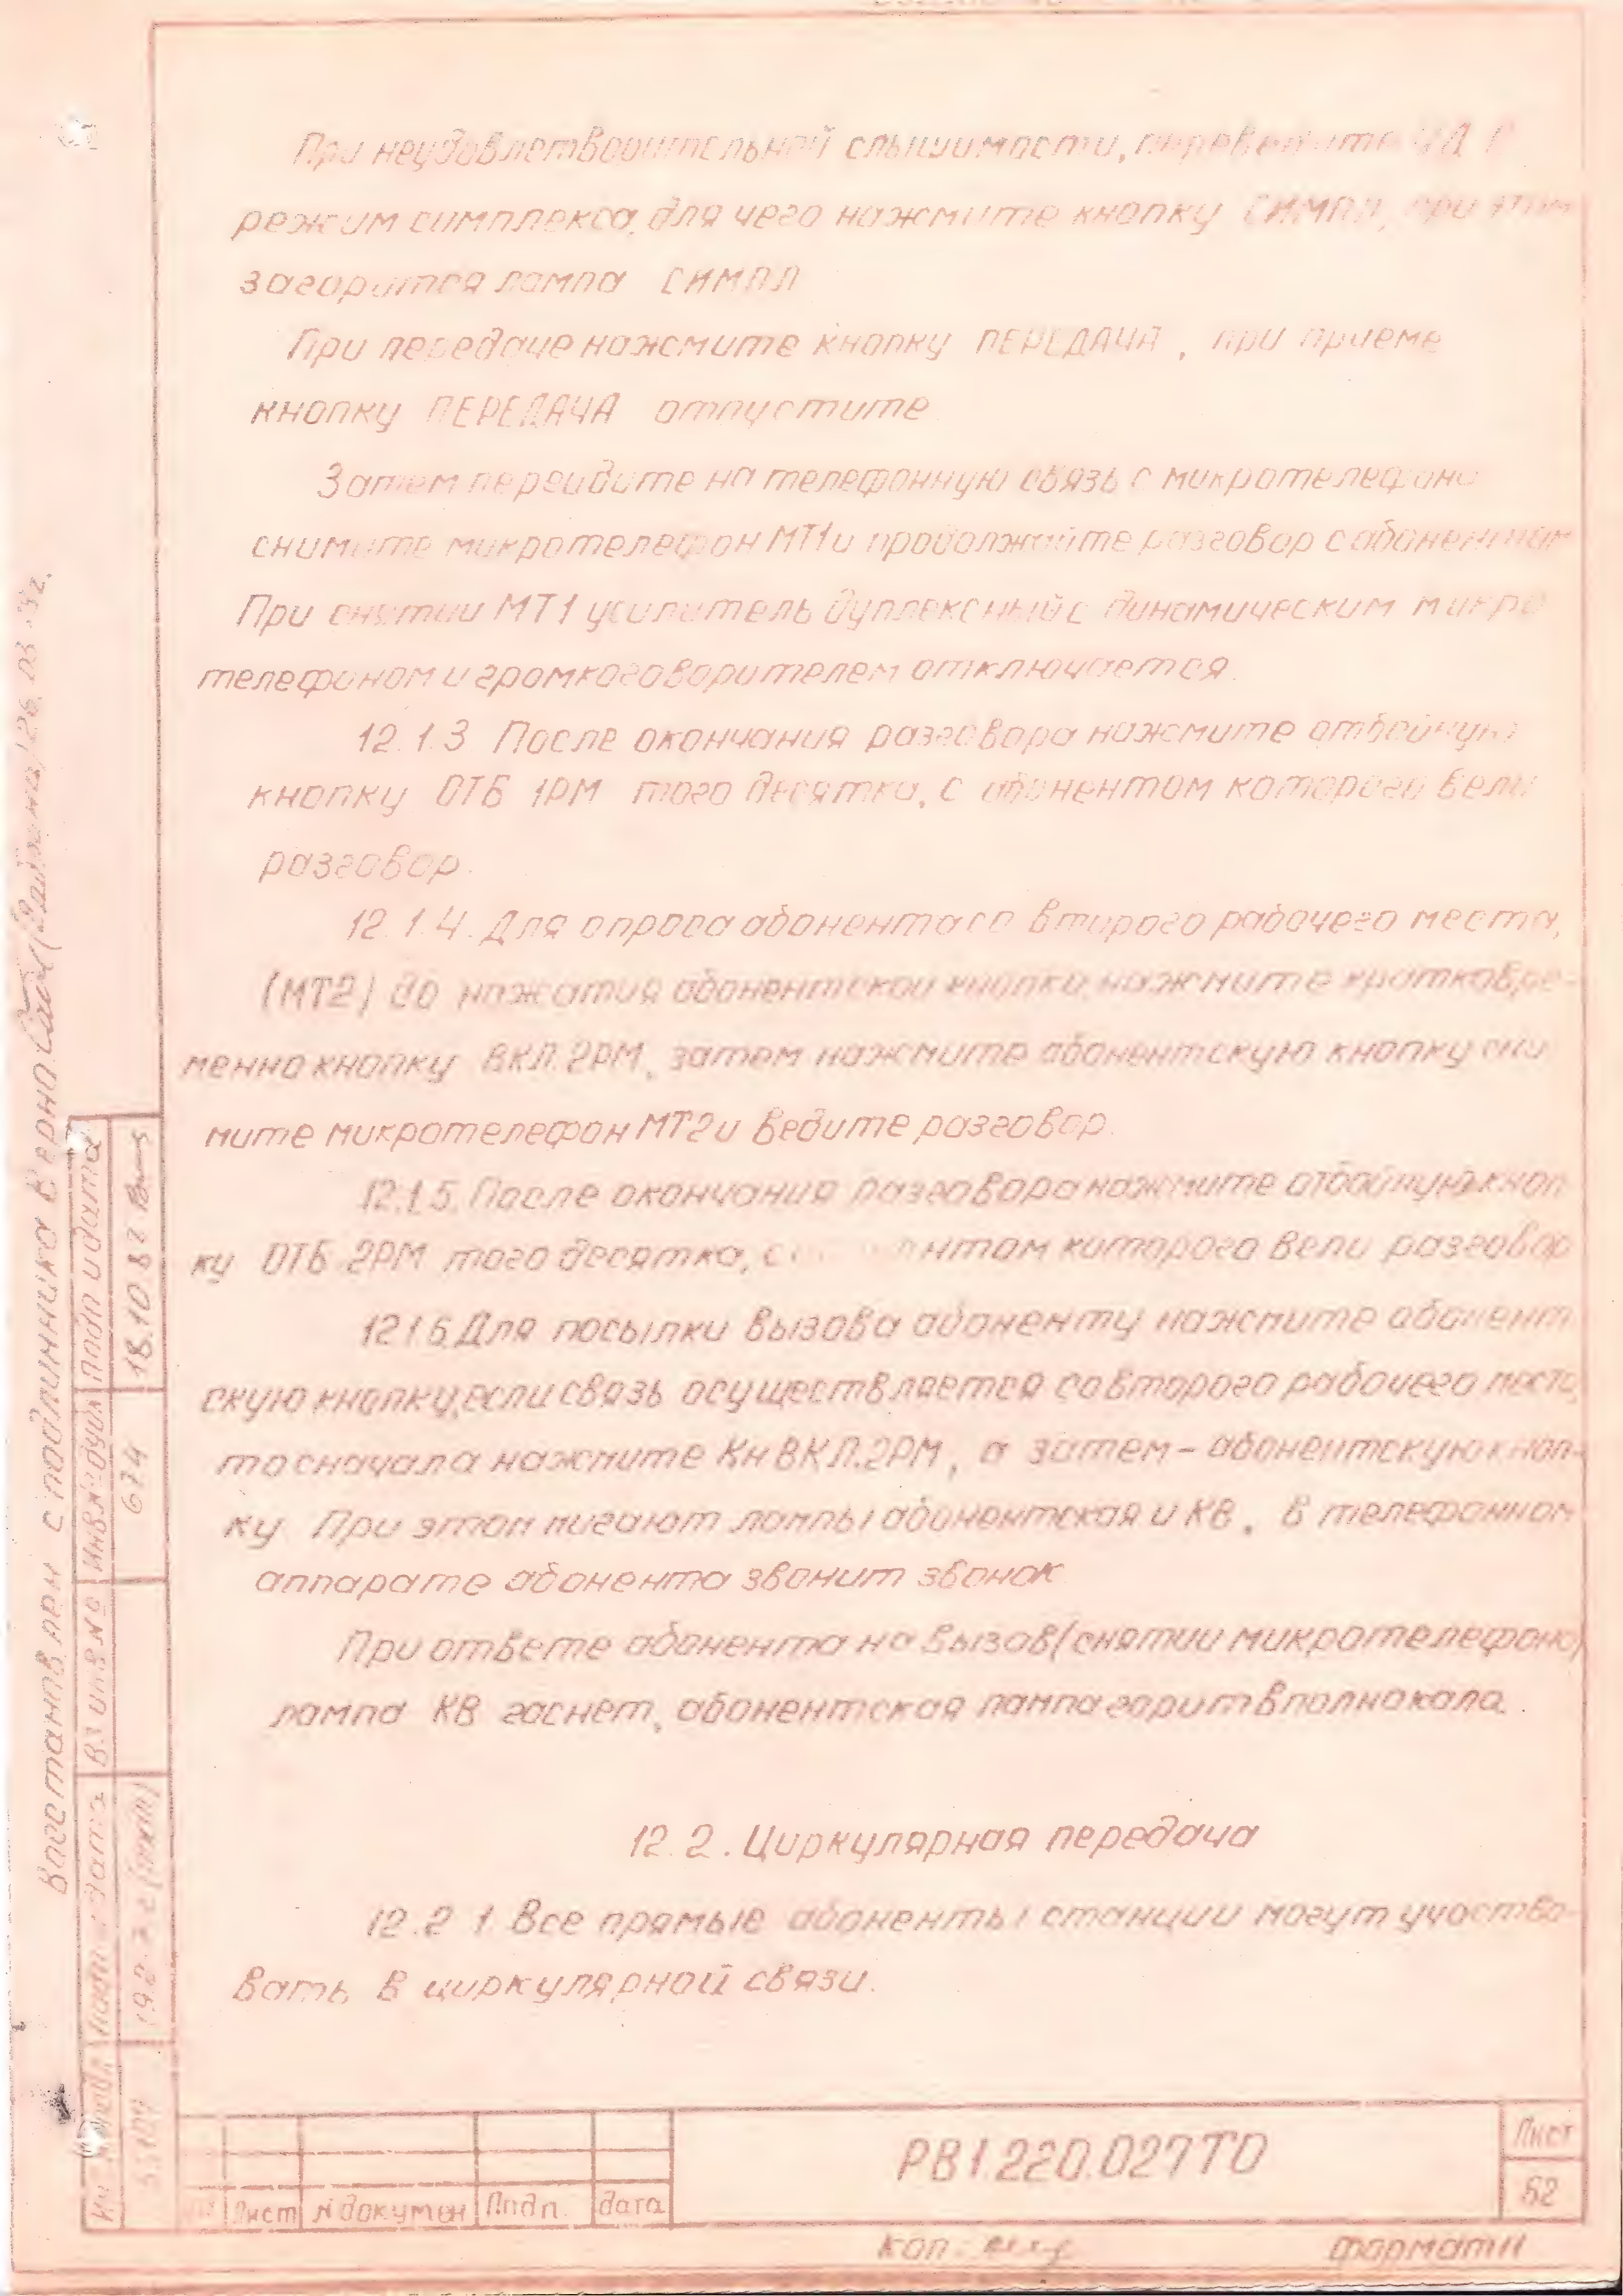 При неудовлетворительной слышимости, переведите УД в
режим симплекса, для чего нажмите кнопку СИМПЛ, при этом
загорится лампа СИМПЛ
При передаче нажмите кнопку ПЕРЕДАЧА, при приеме
кнопку ПЕРЕДАЧА отпустите
Затем перейдите на телефонную связь с микротелефона
снимите микротелефон МТ1 и продолжайте разговор с абонентом
При снятии МТ1 усилитель дуплексный с динамическим микро
телефоном и громкоговорителем отключается.
12.1.3 После окончания разговора нажмите отбойную
кнопку ОТБ 1РМ того десятка, с абонентом которого вели
разговор.
12.1.4. Для опроса абонента со второго рабочего места,
(МТ2) до нажатия абонентской кнопки, нажмите кратковре-
менно кнопку ВКЛ.2РМ, затем нажмите абонентскую кнопку сни
мите микротелефон МТ2 и ведите разговор.
12.1.5. После окончания разговора нажмите отбойную кноп
ку ОТБ 2РМ того десятка, с нтом которого вели разговор
12.1.6. Для посылки вызова абоненту нажмите абонент
скую кнопку, если связь осуществляется со второго рабочего места,
то сначала нажмите Кн ВКЛ.2РМ, а затем – абонентскую кноп-
ку При этом мигают лампы абонентская и КВ, в телефонном
аппарате абонента звонит звонок
При ответе абонента на вызов (снятии микротелефона)
лампа КВ гаснет, абонентская лампа горит вполнакала.
12.2. Циркулярная передача
12.2.1. Все прямые абоненты станции могут участво-
вать в циркулярной связи.
Восстановлен с подлинником верно
Подп и дата
18.10.82
Инв.№ дубл
674
Вз инв №
Подп и дата
19.2.
Лист № докумен Подп. дата
РВ1.220.027ТО
Лист
62
Коп:
Формат 11